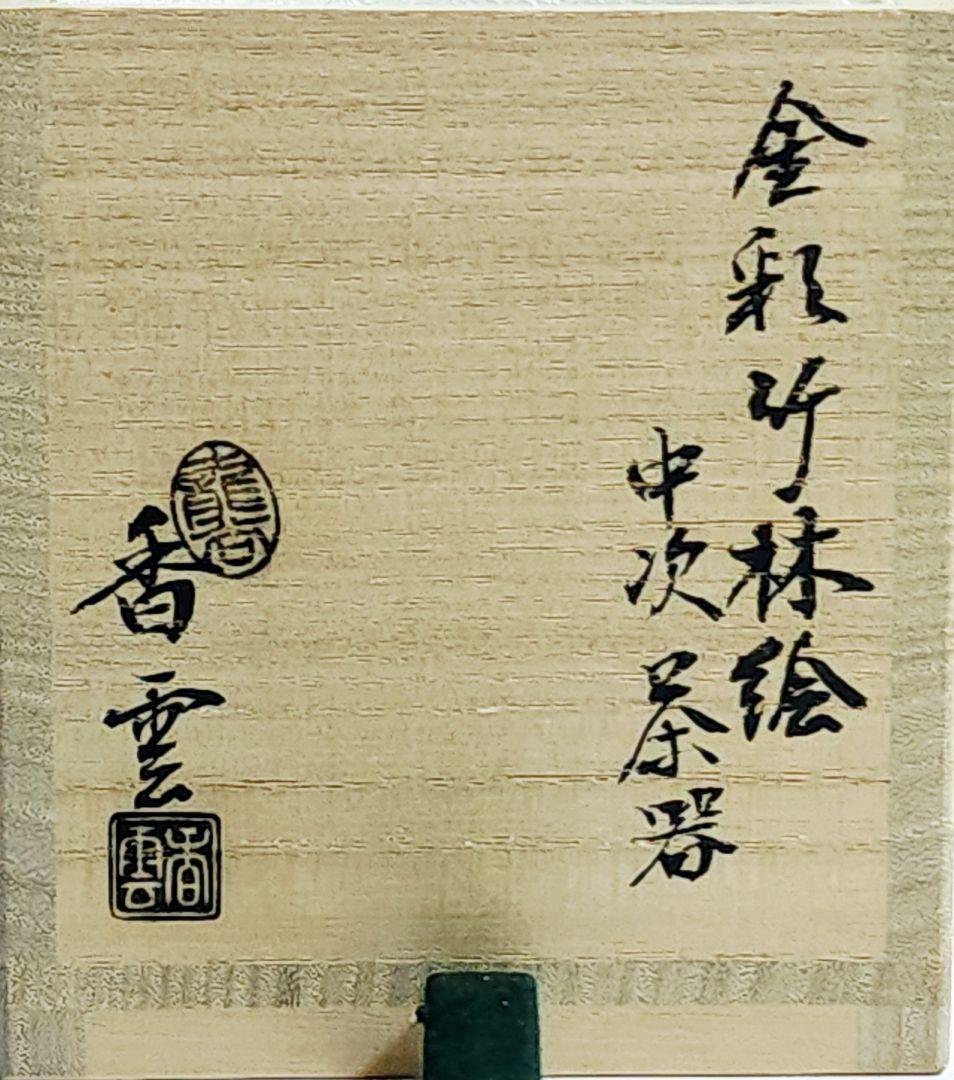 金彩竹林絵
中次茶器
香雲
香雲